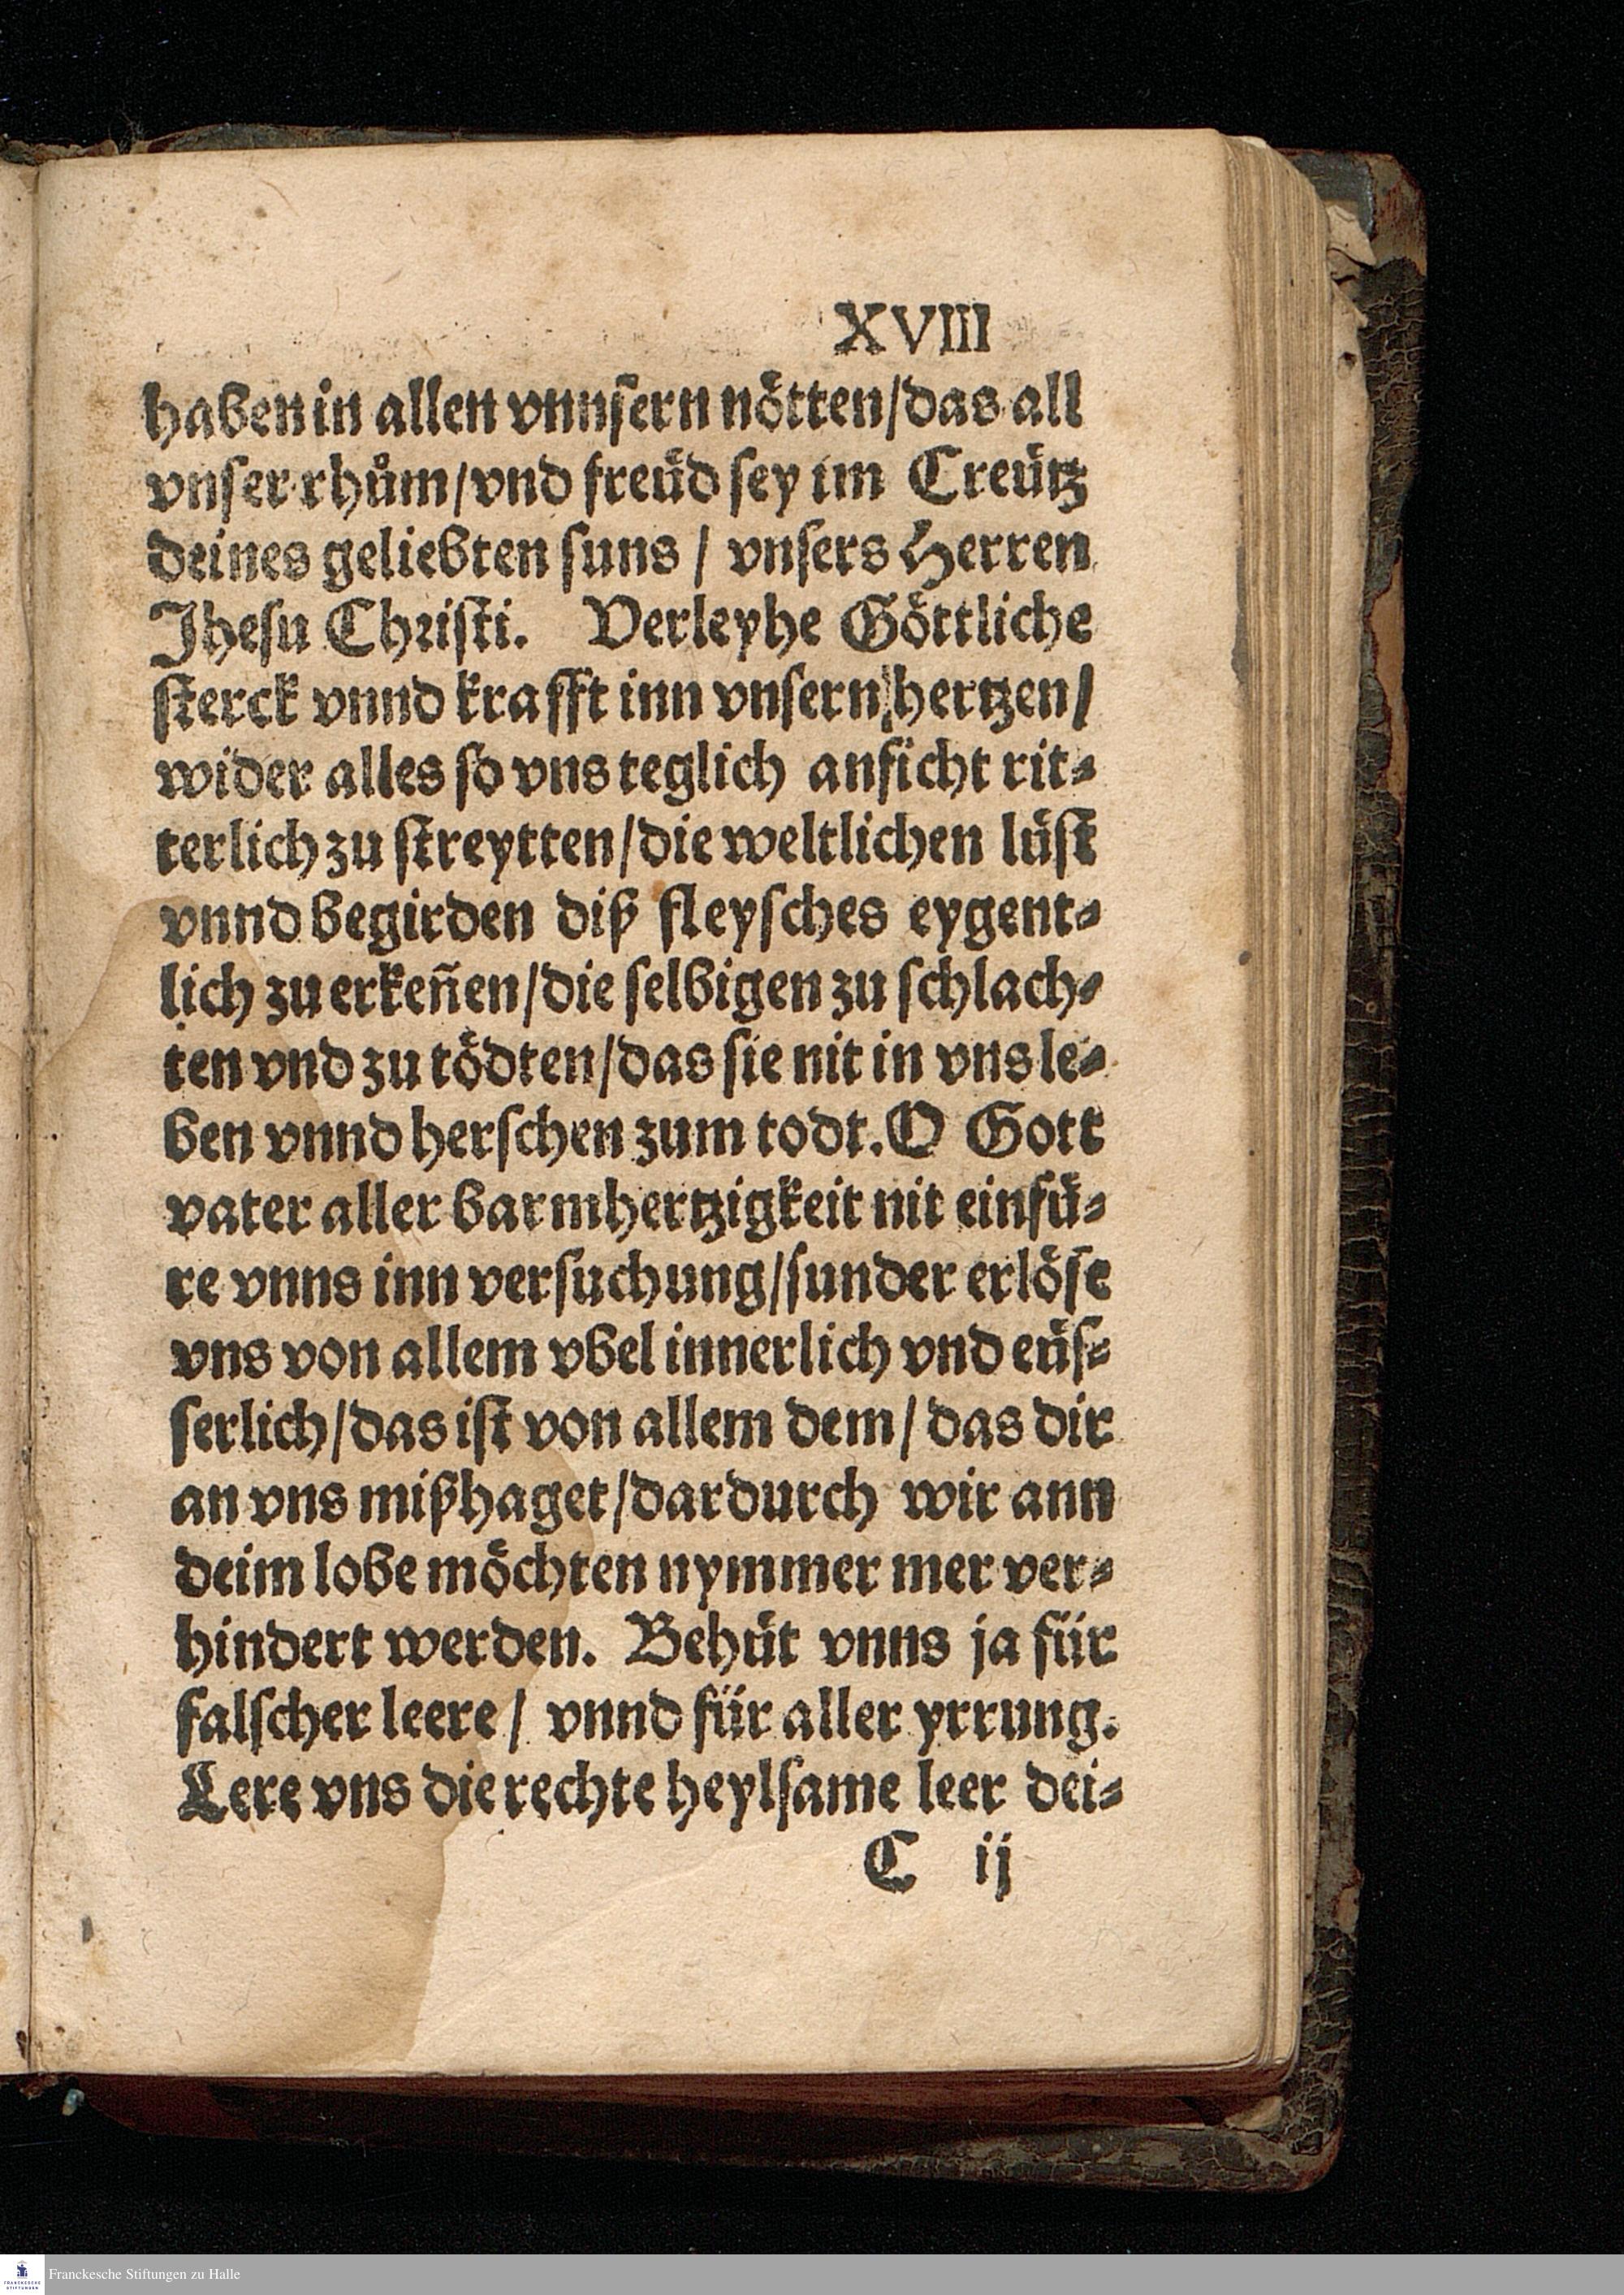 XVIII
haben in allen vnnsern nötten/das all
vnser rhům/vnd freüd sey im Creütz
deines geliebten suns / vnsers Herren
Jhesu Christi. Verleyhe Göttliche
sterck vnnd krafft inn vnsern hertzen/
wider alles so vns teglich anficht rit⸗
terlich zu streytten/die weltlichen lüst
vnnd begirden diß fleysches eygent⸗
lich zu erkeñen/die selbigen zu schlach⸗
ten vnd zu tödten/das sie nit in vns le⸗
ben vnnd herschen zum todt. O Gott
vater aller barmhertzigkeit nit einfü⸗
re vnns inn versuchung/sunder erlöse
vns von allem vbel innerlich vnd eüs⸗
serlich/das ist von allem dem/ das dir
an vns mißhaget/dardurch wir ann
deim lobe möchten nymmer mer ver⸗
hindert werden. Behüt vnns ja für
falscher leere / vnnd für aller yrrung.
Lere vns die rechte heylsame leer dei⸗
C ij
Franckesche Stiftungen zu Halle
FRANCKESCHE
STIFTUNGEN